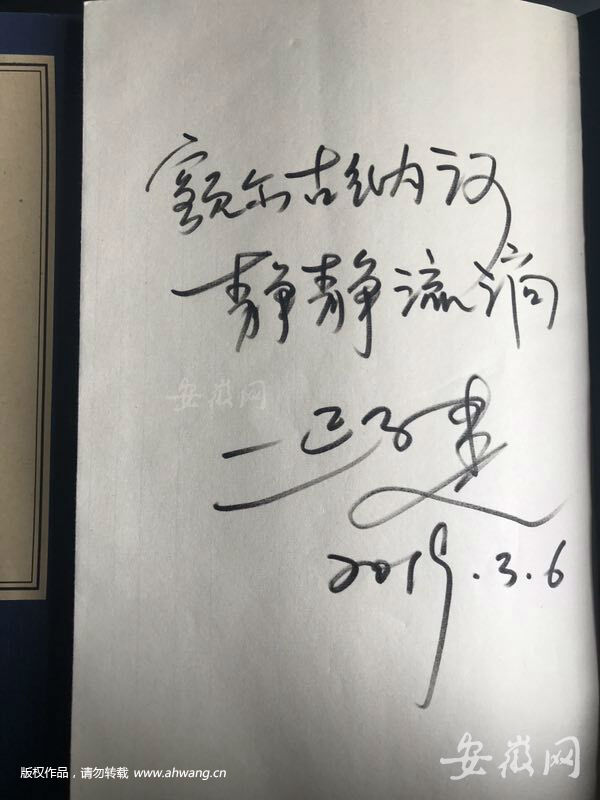 额尔古纳河
静静流淌
安徽网
迟子建
2019.3.6
安徽网
版权作品，请勿转载 www.ahwang.cn